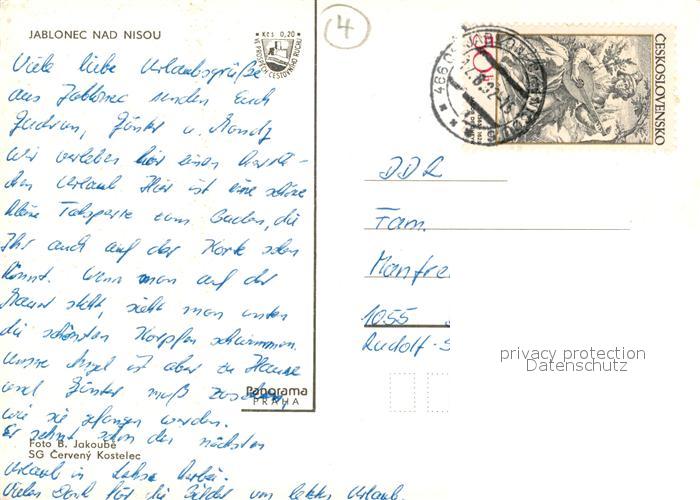 JABLONEC NAD NISOU
Kčs 0,20
VE PROSPĚCH CESTOVNÍHO RUCHU
4
ČESKOSLOVENSKO
Viele liebe Urlaubsgrüße
aus Jablonec senden Euch
Gudrun, Günter u. Mandy
Wir verleben hier einen herrli-
chen Urlaub Hier ist eine schöne
kleine Talsperre zum Baden, die
Ihr auch auf der Karte sehen
könnt. Wenn man auf der
Mauer steht, sieht man unten
die schönsten Karpfen schwimmen.
Unsre Angel ist aber zu Hause
und Günter muß zusehen,
wie sie gefangen werden.
Er sehnt schon den nächsten
Urlaub in
Vielen Dank für die Bilder vom letzten Urlaub.
Panorama
PRAHA
Foto B. Jakoubě
SG Červený Kostelec
DDR
Fam.
Manfre
1055
Rudolf-S
privacy protection
Datenschutz